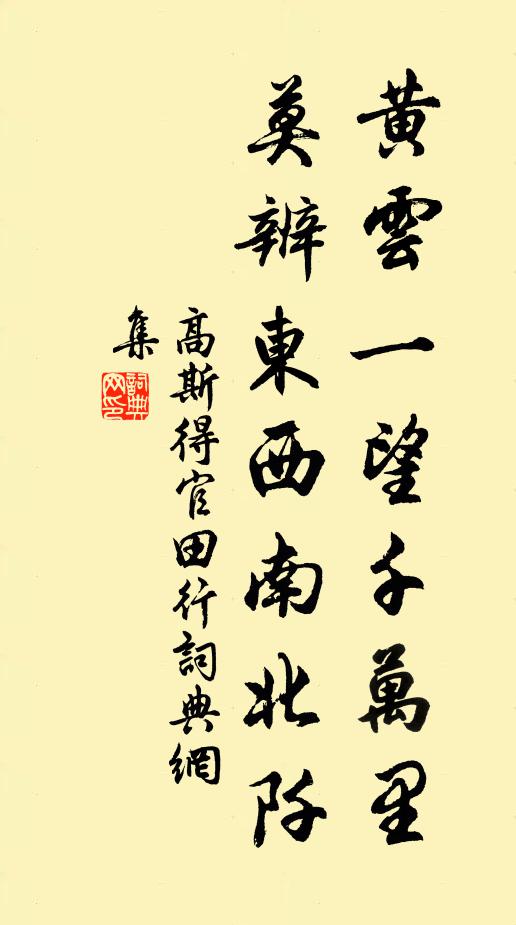 黃雲一望千萬里
莫辨東西南北阡
高斯得官田行詞典網
集
詞典
网印